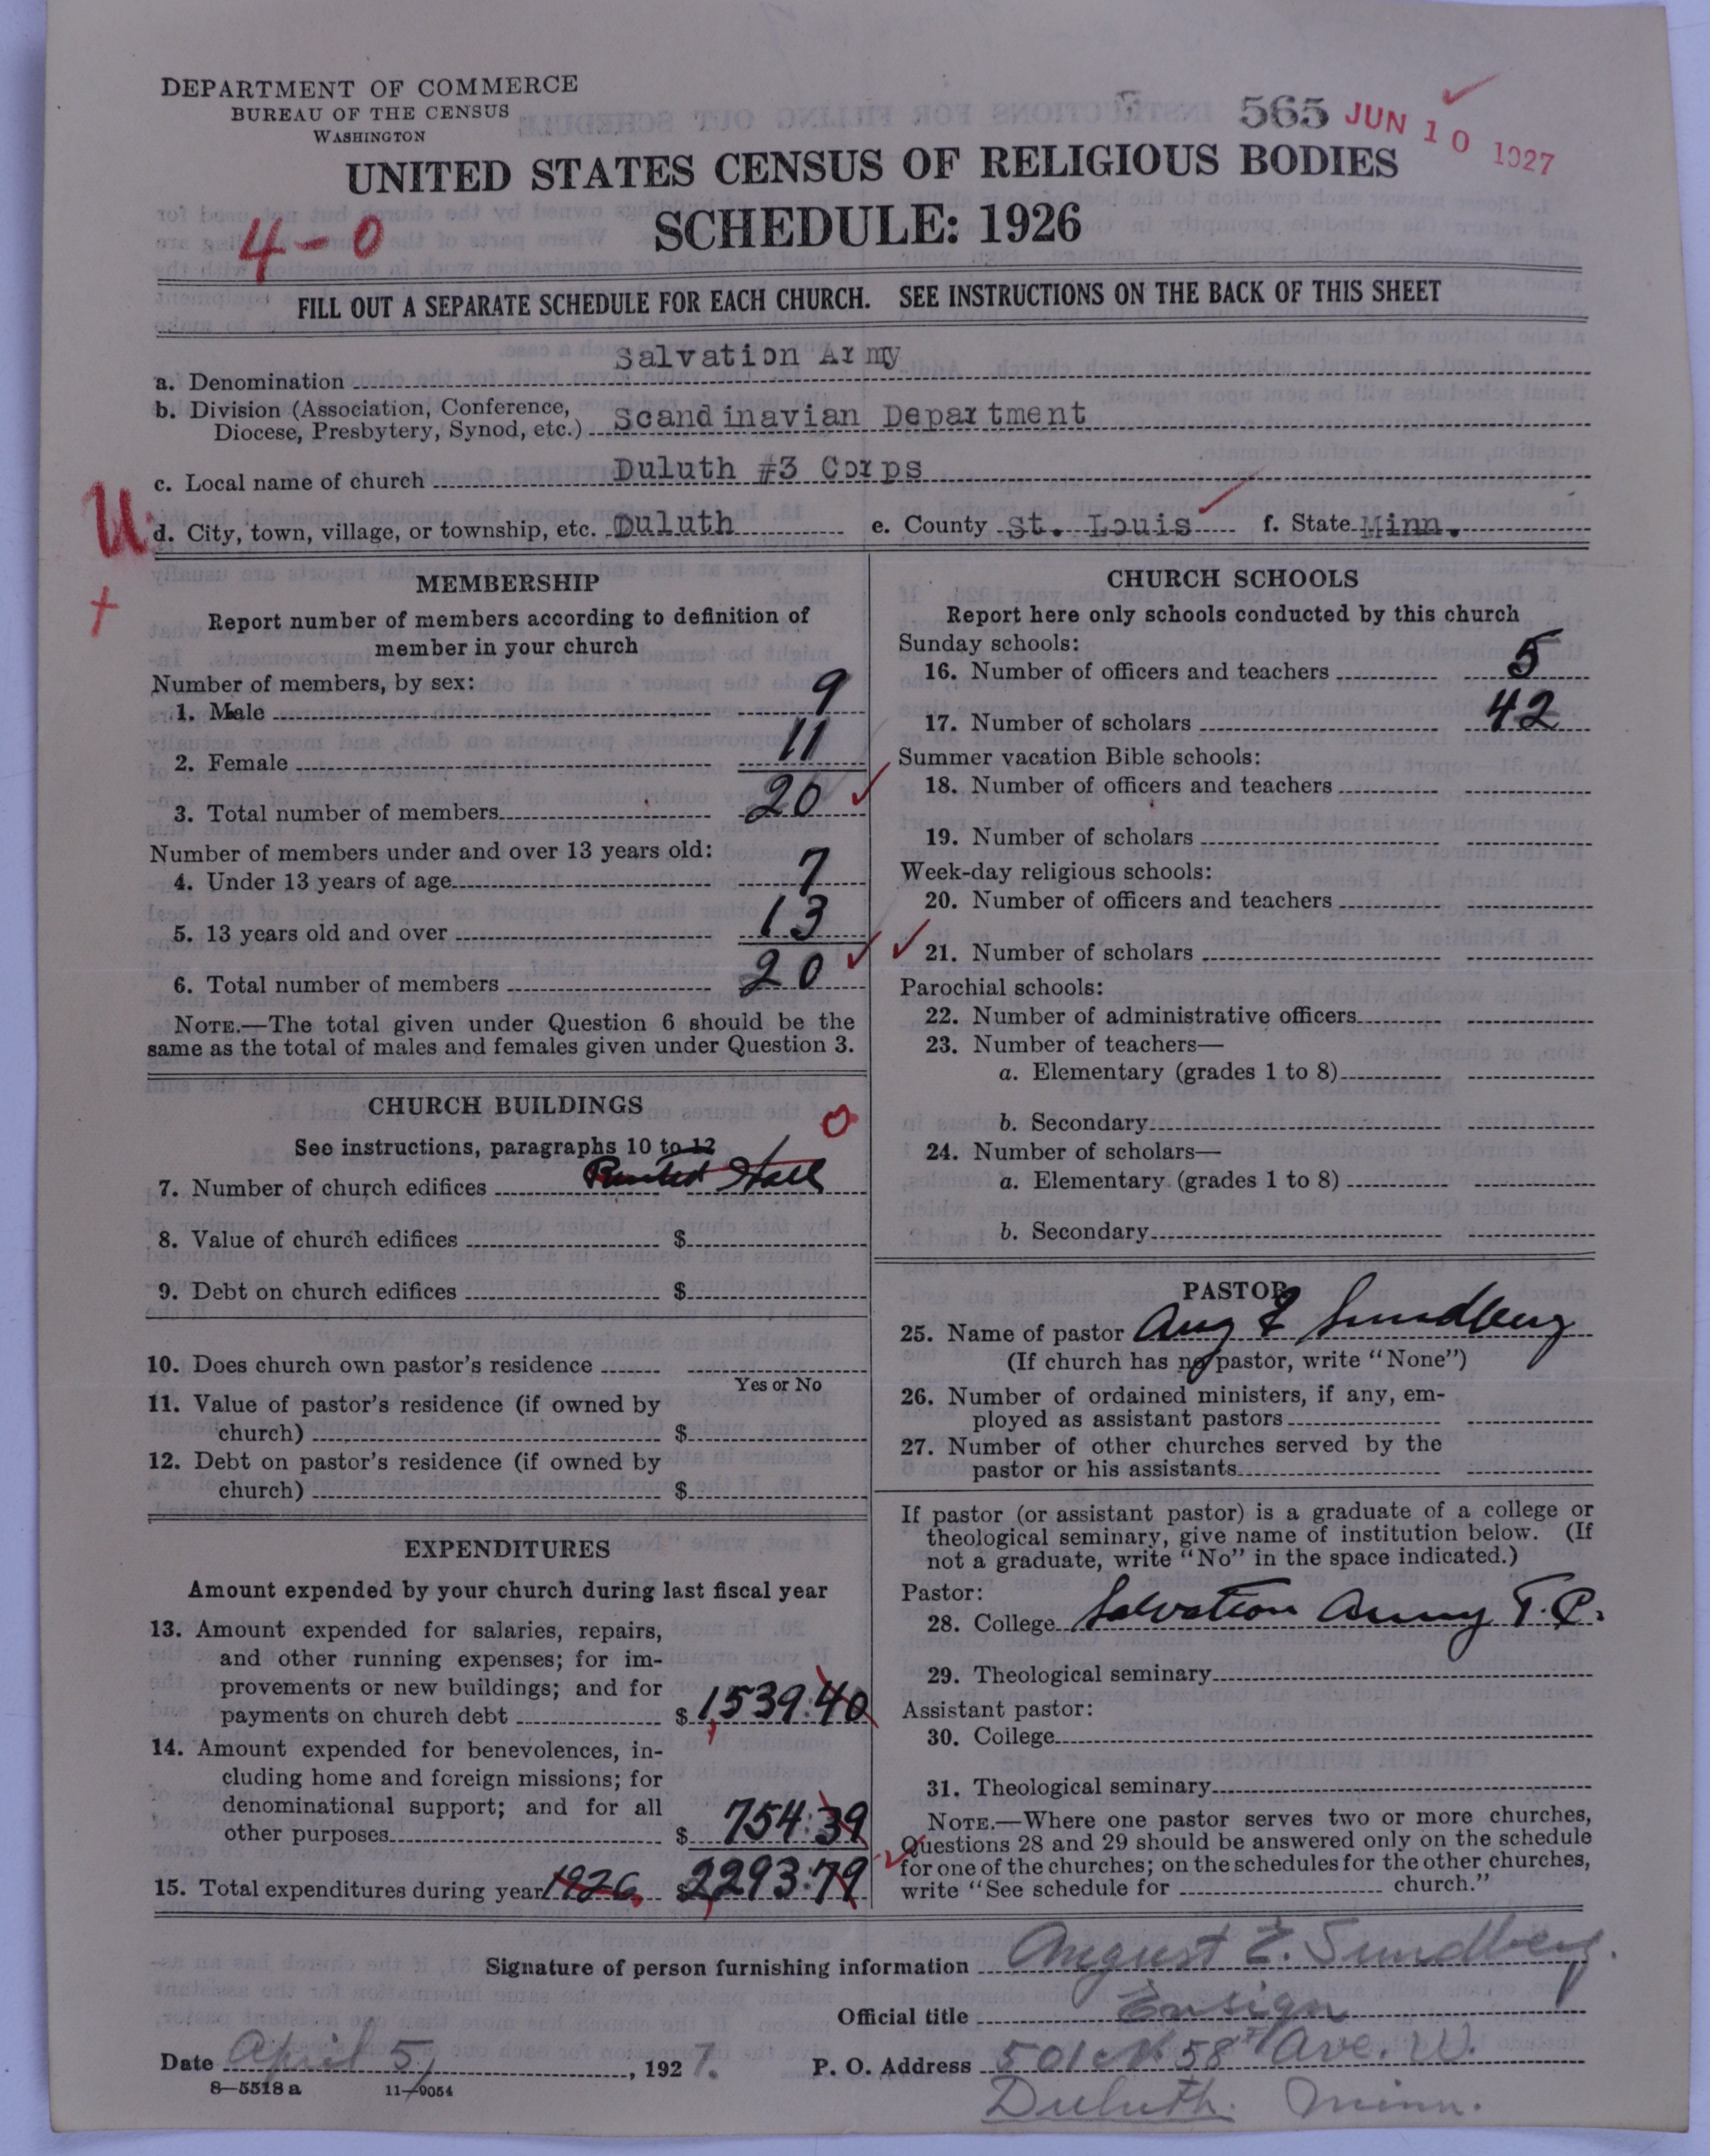 DEPARTMENT OF COMMERCE
BUREAU OF THE CENSUS
WASHINGTON
565 JUN 10 1927
UNITED STATES CENSUS OF RELIGIOUS BODIES
4-0
SCHEDULE: 1926
FILL OUT A SEPARATE SCHEDULE FOR EACH CHURCH. SEE INSTRUCTIONS ON THE BACK OF THIS SHEET
a. Denomination Salvation Army
b. Division (Association, Conference,
Diocese, Presbytery, Synod, etc.) Scandinavian Department
c. Local name of church Duluth #3 Corps
U
d. City, town, village, or township, etc. Duluth e. County St. Louis f. State Minn.
+
MEMBERSHIP
Report number of members according to definition of
member in your church
Number of members, by sex:
1. Male 9
2. Female 11
3. Total number of members 20
Number of members under and over 13 years old:
4. Under 13 years of age 7
5. 13 years old and over 13
6. Total number of members 20
NOTE.—The total given under Question 6 should be the
same as the total of males and females given under Question 3.
CHURCH BUILDINGS
0
See instructions, paragraphs 10 to 12
7. Number of church edifices Rented Hall
8. Value of church edifices $
9. Debt on church edifices $
10. Does church own pastor's residence
Yes or No
11. Value of pastor's residence (if owned by
church) $
12. Debt on pastor's residence (if owned by
church) $
EXPENDITURES
Amount expended by your church during last fiscal year
13. Amount expended for salaries, repairs,
and other running expenses; for im-
provements or new buildings; and for
payments on church debt $ 1,539.40
14. Amount expended for benevolences, in-
cluding home and foreign missions; for
denominational support; and for all
other purposes $ 754.39
15. Total expenditures during year 1926 $ 2,293.79
CHURCH SCHOOLS
Report here only schools conducted by this church
Sunday schools:
16. Number of officers and teachers 5
17. Number of scholars 42
Summer vacation Bible schools:
18. Number of officers and teachers
19. Number of scholars
Week-day religious schools:
20. Number of officers and teachers
21. Number of scholars
Parochial schools:
22. Number of administrative officers
23. Number of teachers—
a. Elementary (grades 1 to 8)
b. Secondary
24. Number of scholars—
a. Elementary (grades 1 to 8)
b. Secondary
PASTOR
25. Name of pastor Aug E Sundberg
(If church has no pastor, write "None")
26. Number of ordained ministers, if any, em-
ployed as assistant pastors
27. Number of other churches served by the
pastor or his assistants
If pastor (or assistant pastor) is a graduate of a college or
theological seminary, give name of institution below. (If
not a graduate, write "No" in the space indicated.)
Pastor:
28. College Salvation Army T.C.
29. Theological seminary
Assistant pastor:
30. College
31. Theological seminary
NOTE.—Where one pastor serves two or more churches,
Questions 28 and 29 should be answered only on the schedule
for one of the churches; on the schedules for the other churches,
write "See schedule for church."
Signature of person furnishing information August E. Sundberg.
Official title Ensign
Date April 5, 1927. P. O. Address 501 N. 58th Ave. W.
8—5518 a 11—9054
Duluth. Minn.